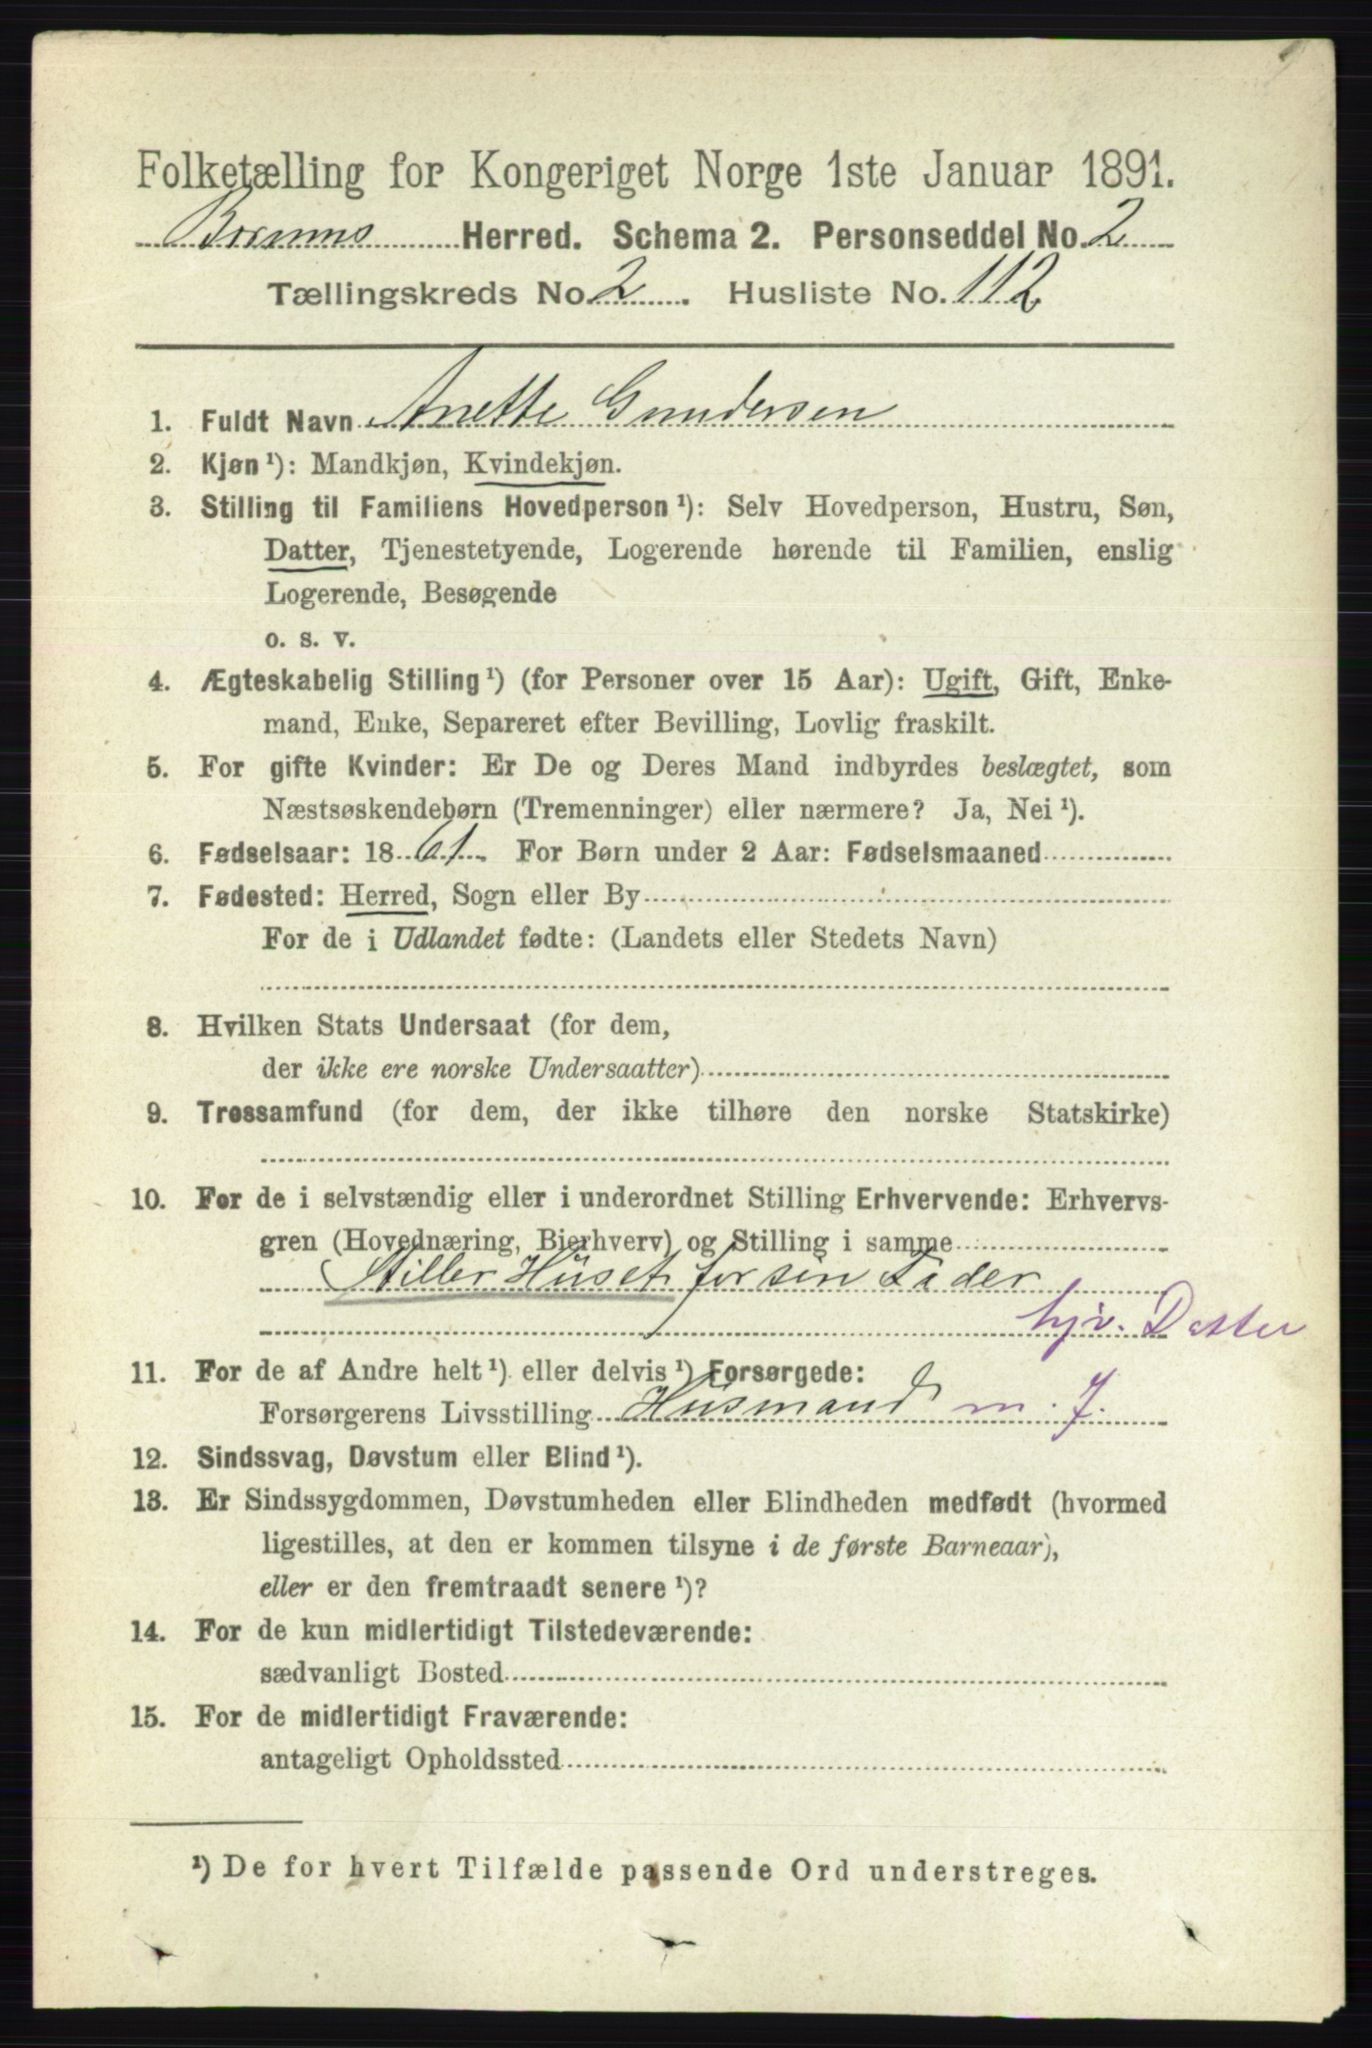 Folketælling for Kongeriget Norge 1ste Januar 1891.
Herred. Schema 2. Personseddel No. 2
Tællingskreds No. 2. Husliste No. 112
1. Fuldt Navn Anette Gundersen
2. Kjøn¹): Mandkjøn, Kvindekjøn.
3. Stilling til Familiens Hovedperson¹): Selv Hovedperson, Hustru, Søn,
Datter, Tjenestetyende, Logerende hørende til Familien, enslig
Logerende, Besøgende
o. s. v.
4. Ægteskabelig Stilling¹) (for Personer over 15 Aar): Ugift, Gift, Enke-
mand, Enke, Separeret efter Bevilling, Lovlig fraskilt.
5. For gifte Kvinder: Er De og Deres Mand indbyrdes beslægtet, som
Næstsøskendebørn (Tremenninger) eller nærmere? Ja, Nei¹).
6. Fødselsaar: 1861. For Børn under 2 Aar: Fødselsmaaned
7. Fødested: Herred, Sogn eller By
For de i Udlandet fødte: (Landets eller Stedets Navn)
8. Hvilken Stats Undersaat (for dem,
der ikke ere norske Undersaatter)
9. Trossamfund (for dem, der ikke tilhøre den norske Statskirke)
10. For de i selvstændig eller i underordnet Stilling Erhvervende: Erhvervs-
gren (Hovednæring, Bierhverv) og Stilling i samme
Stiller Huset for sin Fader
hjv. Datter
11. For de af Andre helt¹) eller delvis¹) Forsørgede:
Forsørgerens Livsstilling Husmand m. J.
12. Sindssvag, Døvstum eller Blind¹).
13. Er Sindssygdommen, Døvstumheden eller Blindheden medfødt (hvormed
ligestilles, at den er kommen tilsyne i de første Barneaar),
eller er den fremtraadt senere¹)?
14. For de kun midlertidigt Tilstedeværende:
sædvanligt Bosted
15. For de midlertidigt Fraværende:
antageligt Opholdssted
¹) De for hvert Tilfælde passende Ord understreges.